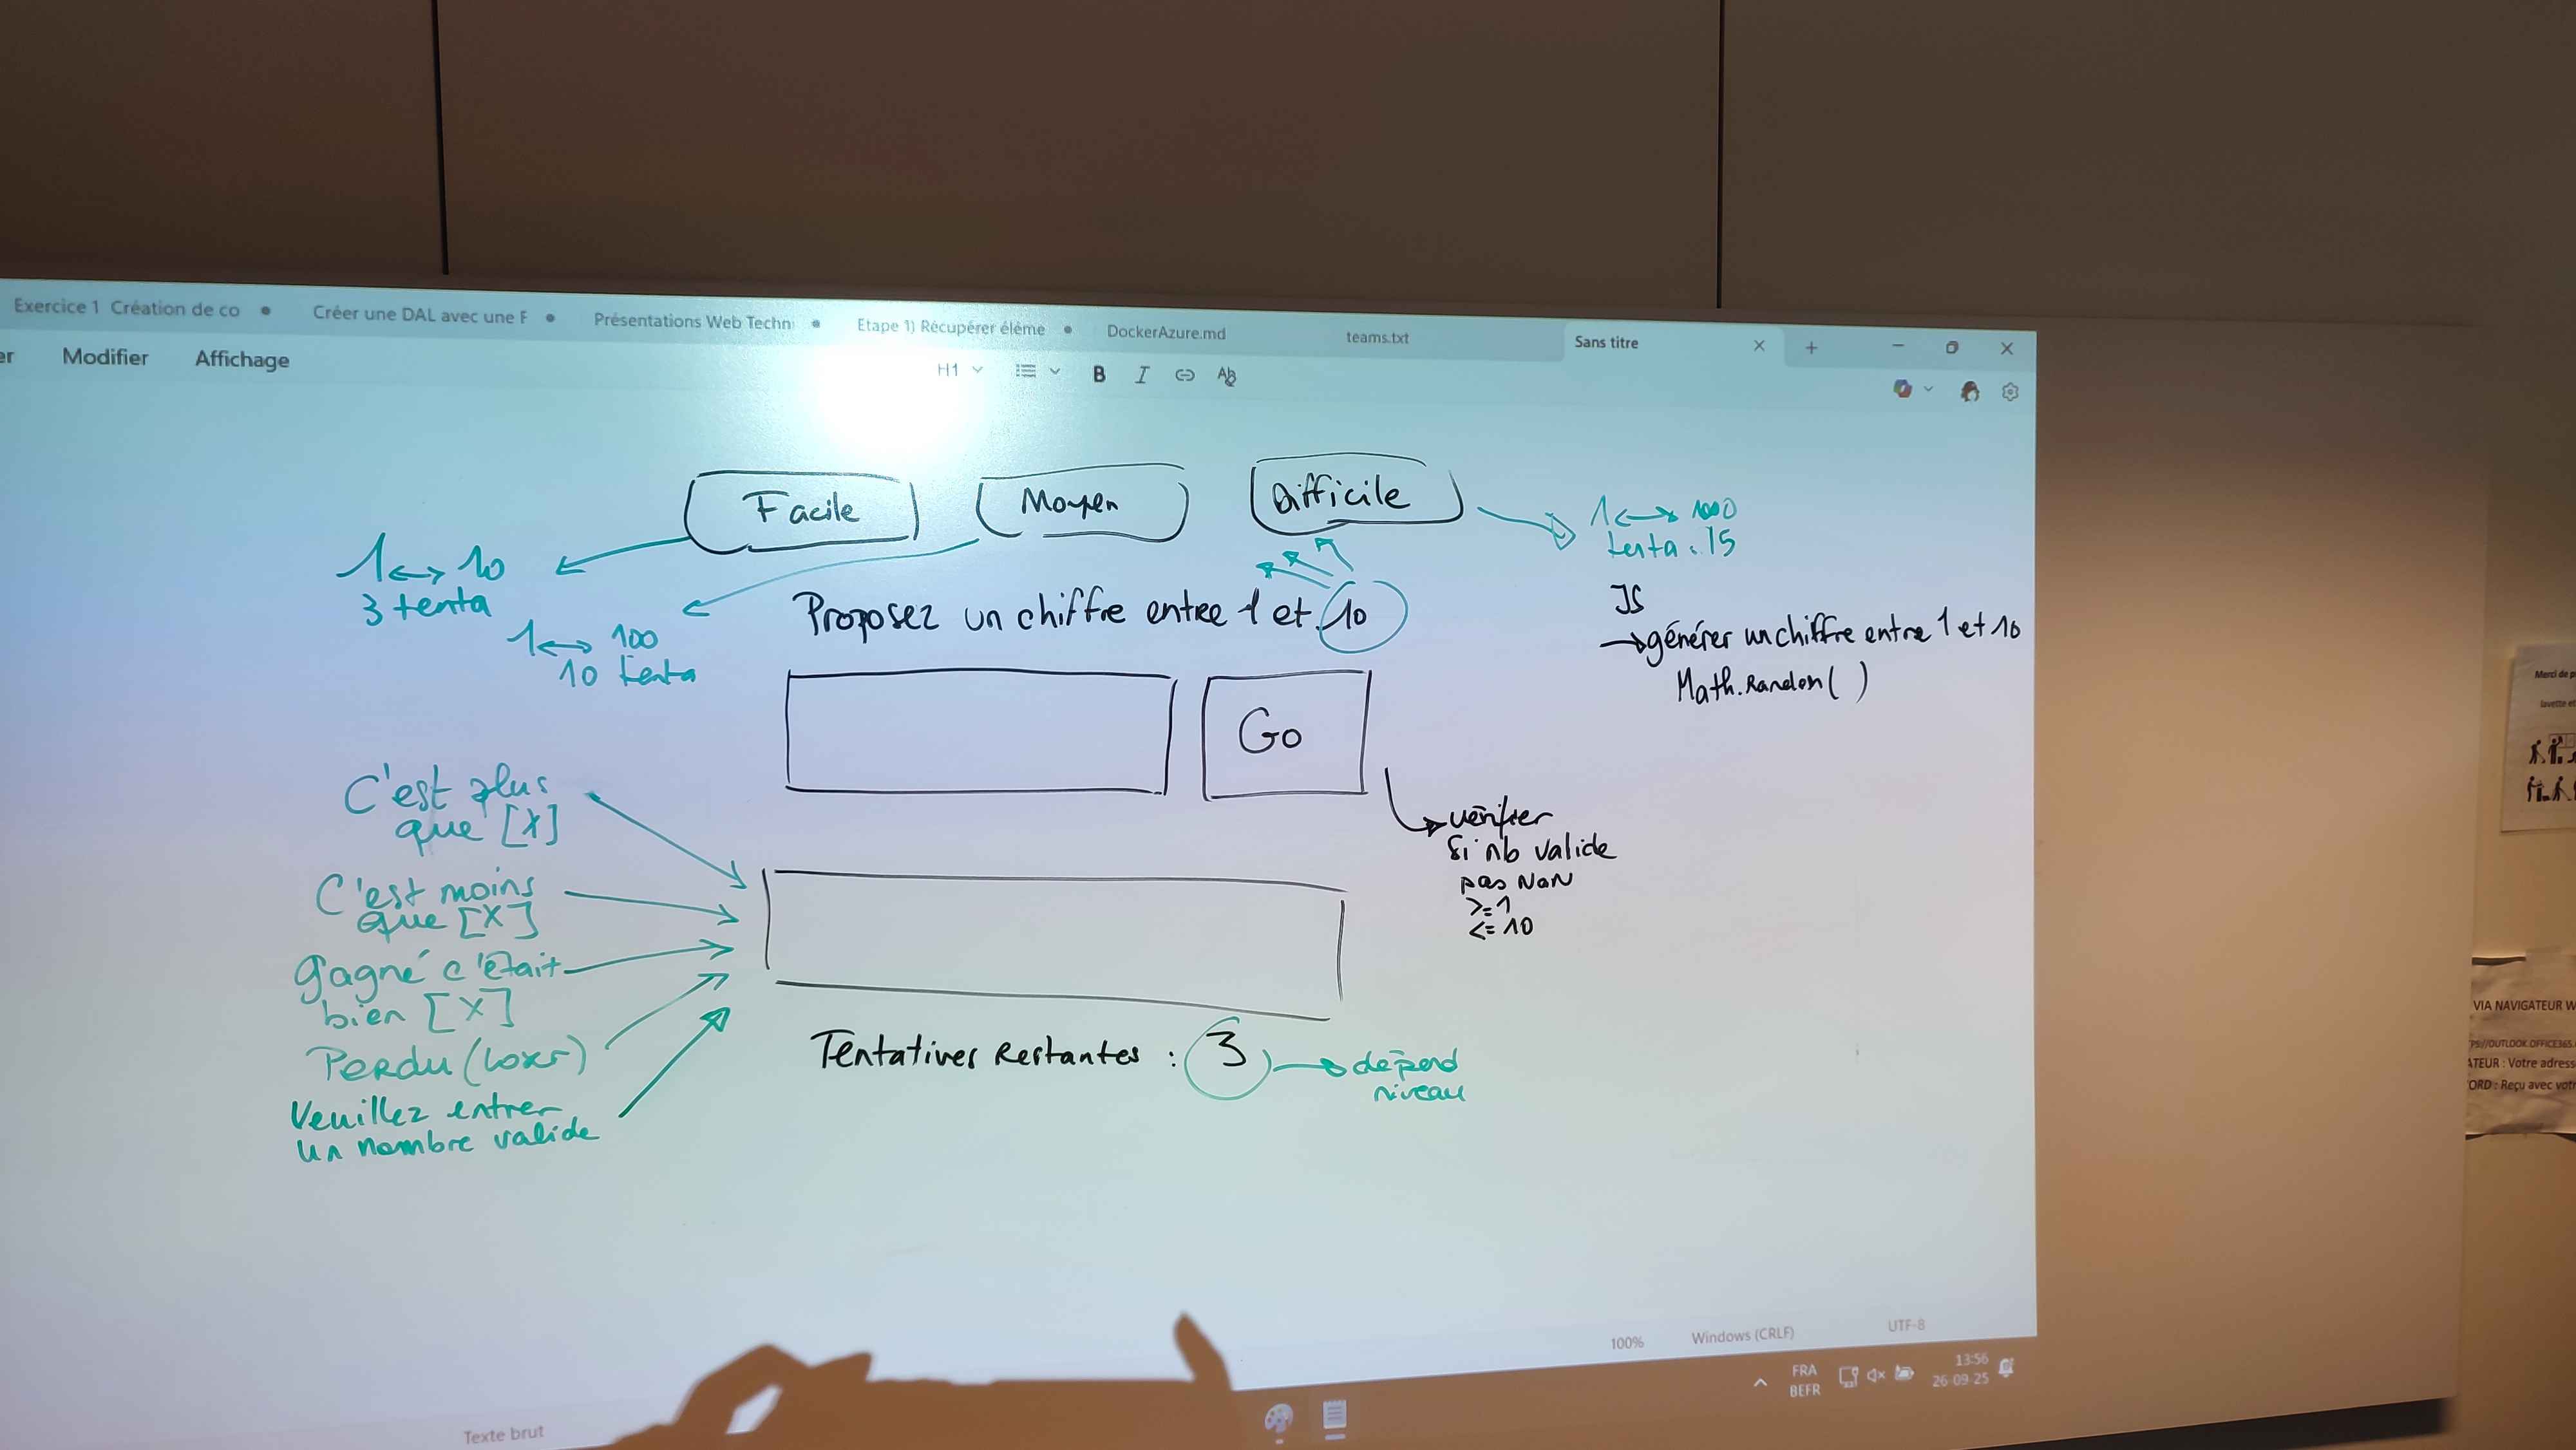 Exercice 1 Création de co
Créer une DAL avec une F
Présentations Web Techn
Etape 1) Récupérer éléme
DockerAzure.md
teams.txt
Sans titre
er Modifier Affichage
H1 B I
Facile
Moyen
Difficile
1 <-> 10
3 tenta
1 <-> 100
10 tenta
1 <-> 1000
tenta : 15
Proposez un chiffre entre 1 et 10
JS
→ générer un chiffre entre 1 et 10
Math.Random( )
Go
→ vérifier
si nb valide
pas NaN
>= 1
<= 10
C'est plus
que [X]
C'est moins
que [X]
Gagné c'était
bien [X]
Perdu
Veuillez entrer
un nombre valide
Tentatives Restantes : 3
→ dépend
niveau
100% Windows (CRLF) UTF-8
Texte brut
FRA
BEFR
13:56
26-09-25
Merci de p
lavette et
VIA NAVIGATEUR W
PS://OUTLOOK.OFFICE365.
ATEUR : Votre adress
ORD : Reçu avec votr